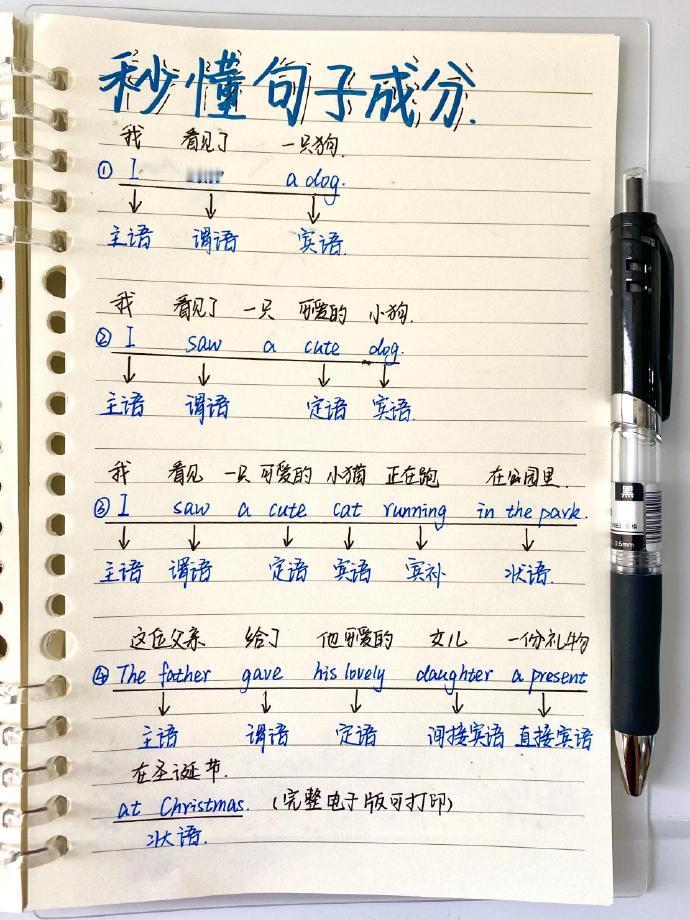 秒懂句子成分.
我 看见了 一只狗.
① I a dog.
主语 谓语 宾语.
我 看见了 一只 可爱的 小狗.
② I saw a cute dog.
主语 谓语 定语 宾语.
我 看见 一只 可爱的 小猫 正在跑 在公园里.
③ I saw a cute cat running in the park.
主语 谓语 定语 宾语 宾补 状语.
这位父亲 给了 他可爱的 女儿 一份礼物
④ The father gave his lovely daughter a present
主语 谓语 定语 间接宾语 直接宾语
在圣诞节.
at Christmas. (完整电子版可打印)
状语.
0.5mm